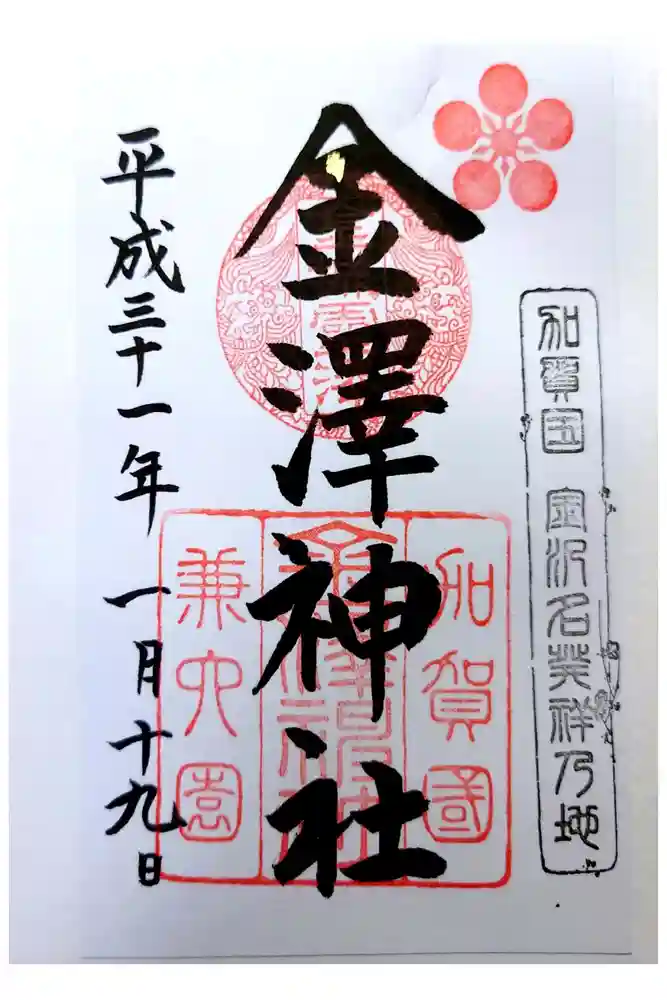 加賀国 金沢名発祥乃地
金澤神社
加賀國
金澤神社
兼六園
平成三十一年 一月十九日